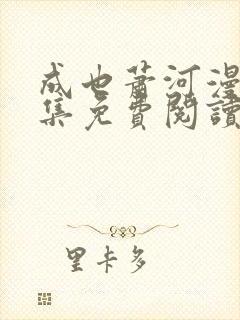 成也蕭河漫
集免費閱讀
里卡多